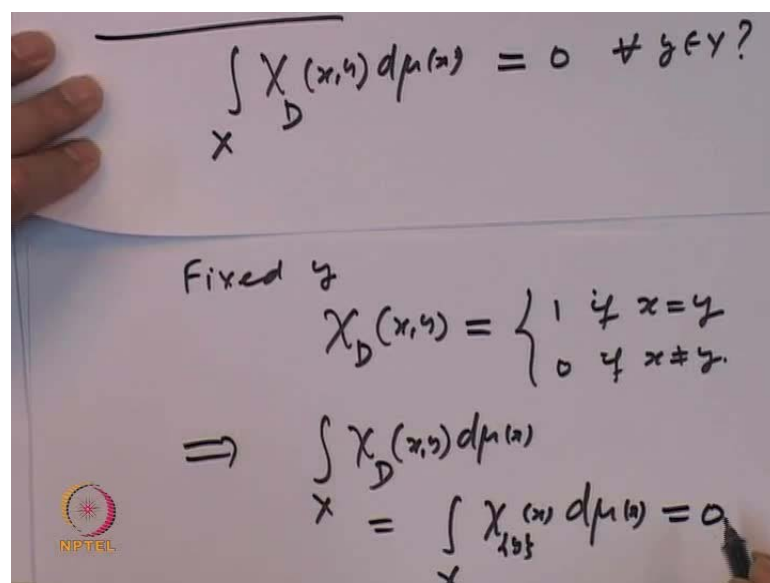 ∫_X χ_D(x,y) dμ(x) = 0 ∀ y ∈ Y?
Fixed y
χ_D(x,y) = { 1 if x = y
0 if x ≠ y.
⟹ ∫_X χ_D(x,y) dμ(x)
= ∫_X χ_{y}(x) dμ(x) = 0
NPTEL